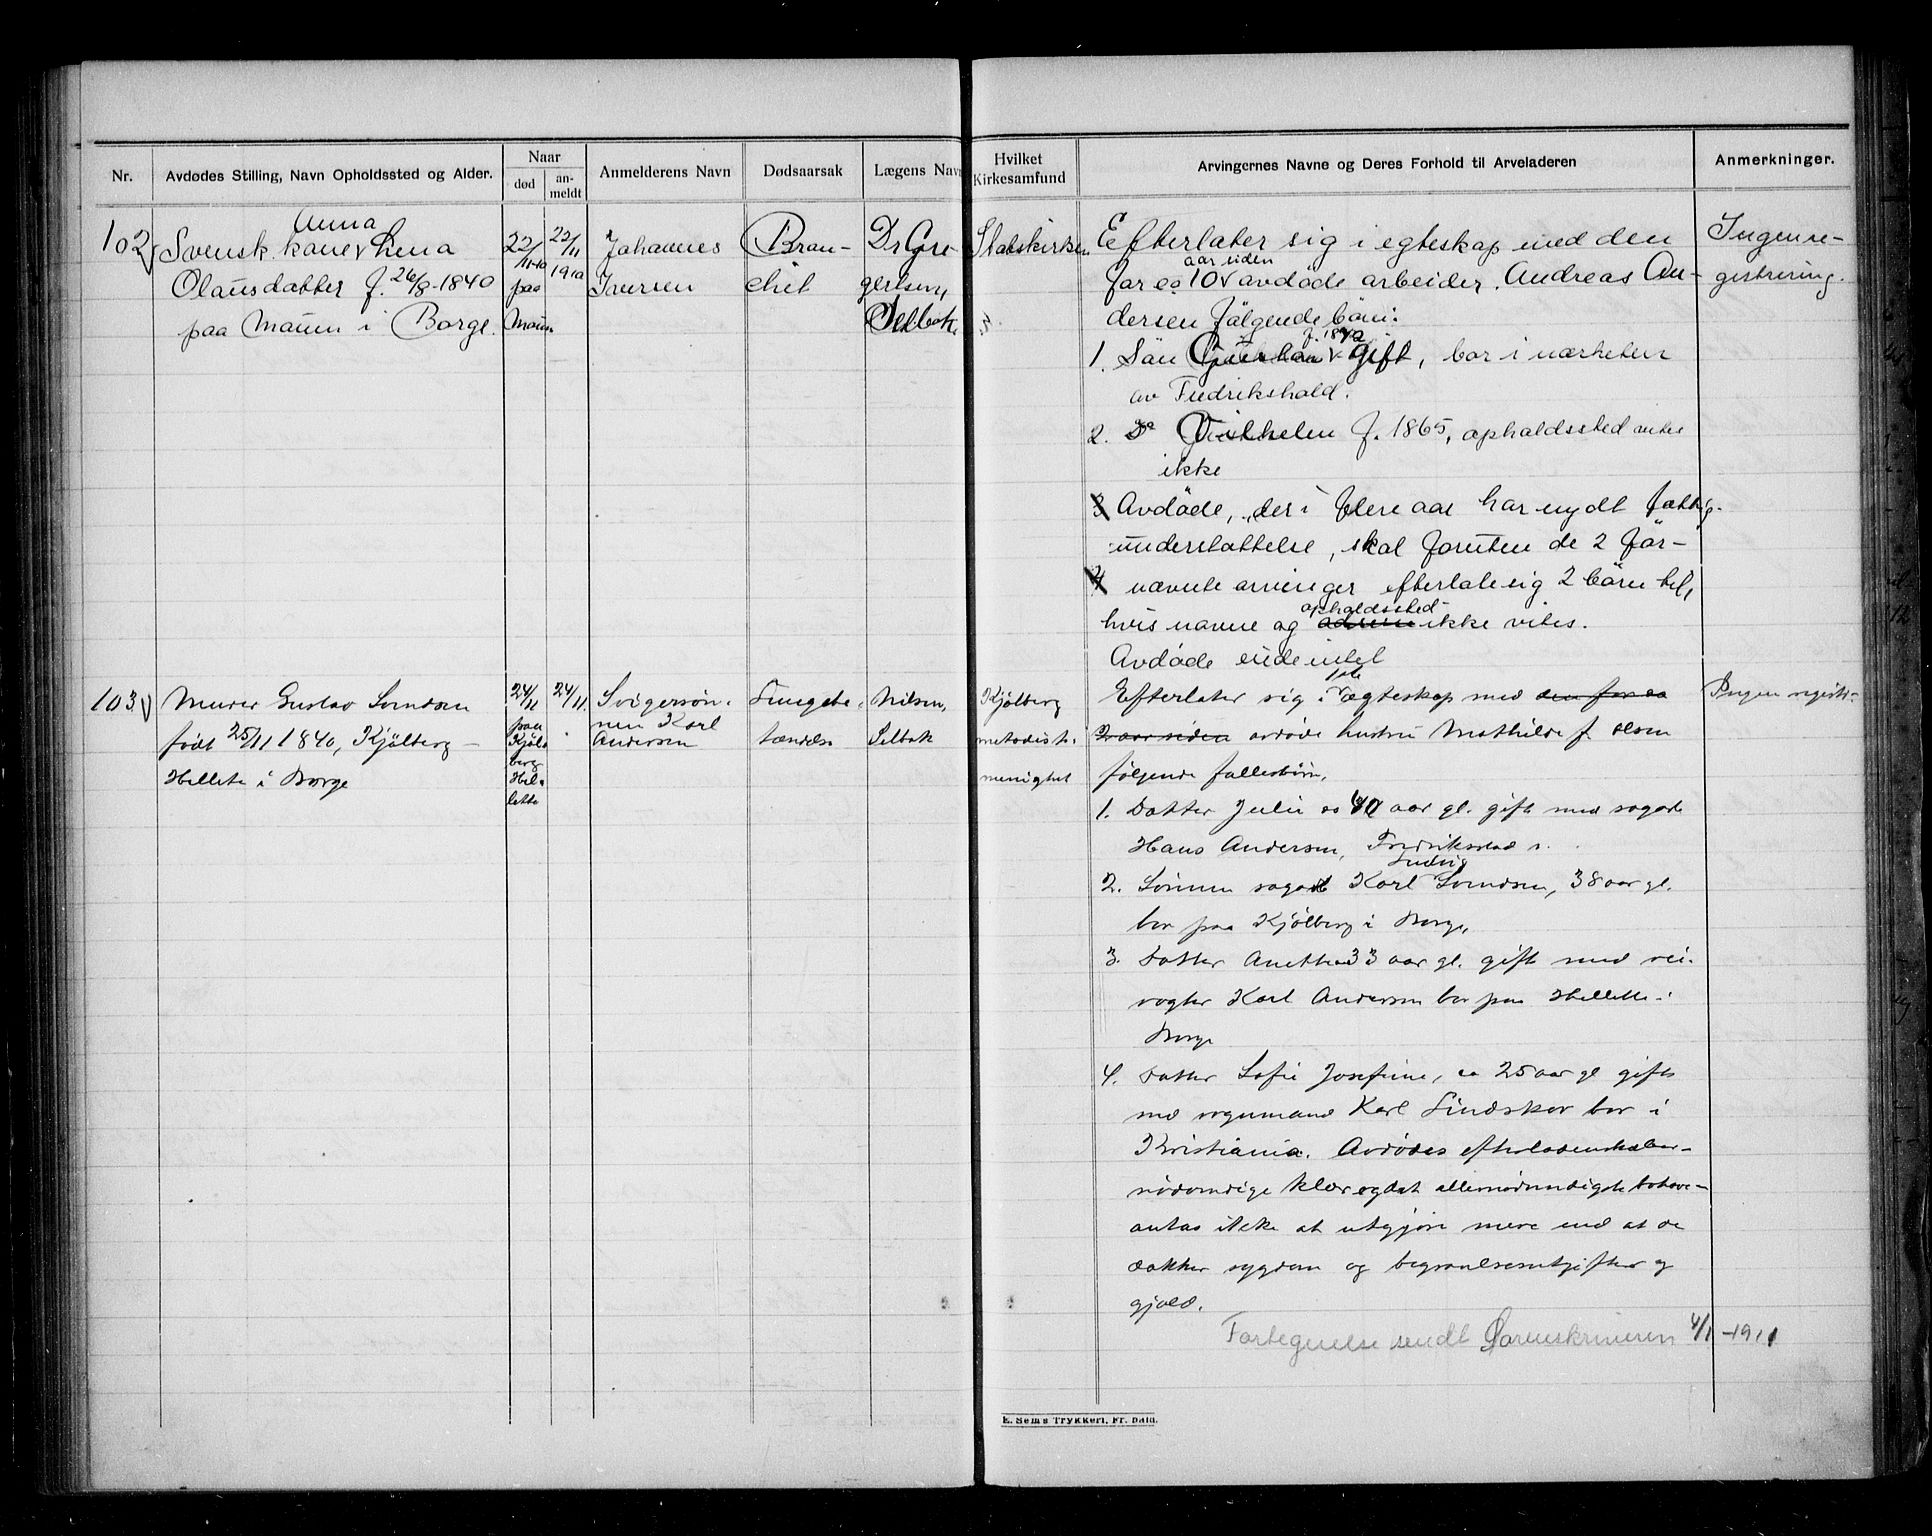 Nr.
Avdødes Stilling, Navn Opholdssted og Alder.
Naar
død
an-
meldt
Anmelderens Navn
Dødsaarsak
Lægens Navn
Hvilket
Kirkesamfund
Arvingernes Navne og Deres Forhold til Arveladeren
Anmerkninger.
102
Anna
Svensk kone Lena
Olausdatter f. 26/8-1840
paa Mauen i Borge.
22/11-10
paa
Mauen
22/11
1910
Johannes
Iversen
Bron-
chit
Dr Gre-
gersen,
Selbak
Statskirken
Efterlater sig i egteskap med den
for ca 10 aar siden avdøde arbeider Andreas An-
dersen følgende børn:
1. Søn f. 18 gift, bor i nærheten
av Fredrikshald.
2. Do Vilhelm f. 1865, opholdssted vites
ikke
Avdøde, der i flere aar har nydt fattig-
understøttelse, skal foruten de 2 før-
nævnte arvinger efterlate sig 2 børn til,
hvis navne og opholdssted ikke vites.
Avdøde eide intet
Ingen re-
gistrering.
103
Murer Gustav Svendsen
født 25/11 1840, Kjølberg –
Hellete i Borge
24/11
paa
Kjøl-
berg
Hel-
lette
24/11.
Svigersøn-
nen Karl
Andersen
Lungebe-
tændelse
Nilsen,
Selbak
Kjølberg
metodist-
menighet
Efterlater sig i 1ste egteskap med den for ca
2 aar siden avdøde hustru Mathilde f. Olsen
følgende fællesbørn,
1. Datter Julie ca 40 aar gl. gift med
Hans Andersen, Fredriksstad
2. Sønnen Karl Ludvig Svendsen, 38 aar gl.
bor paa Kjølberg i Borge,
3. Datter Anette 33 aar gl. gift med vei-
vogter Karl Andersen bor paa Hellette i
Borge
4. Datter Sofie Josefine, ca 25 aar gl gift
med vognmand Karl Lindskov bor i
Kristiania. Avdødes efterladenskaber
nødvendige klær og det allernødvendigste
antas ikke at utgjøre mere end at de
dækker sygdom og begravelsesutgifter og
gjæld.
Ingen registr.
Fortegnelse sendt Sorenskriveren 4/1-1911
E. Sems Trykkeri, Fr. hald.